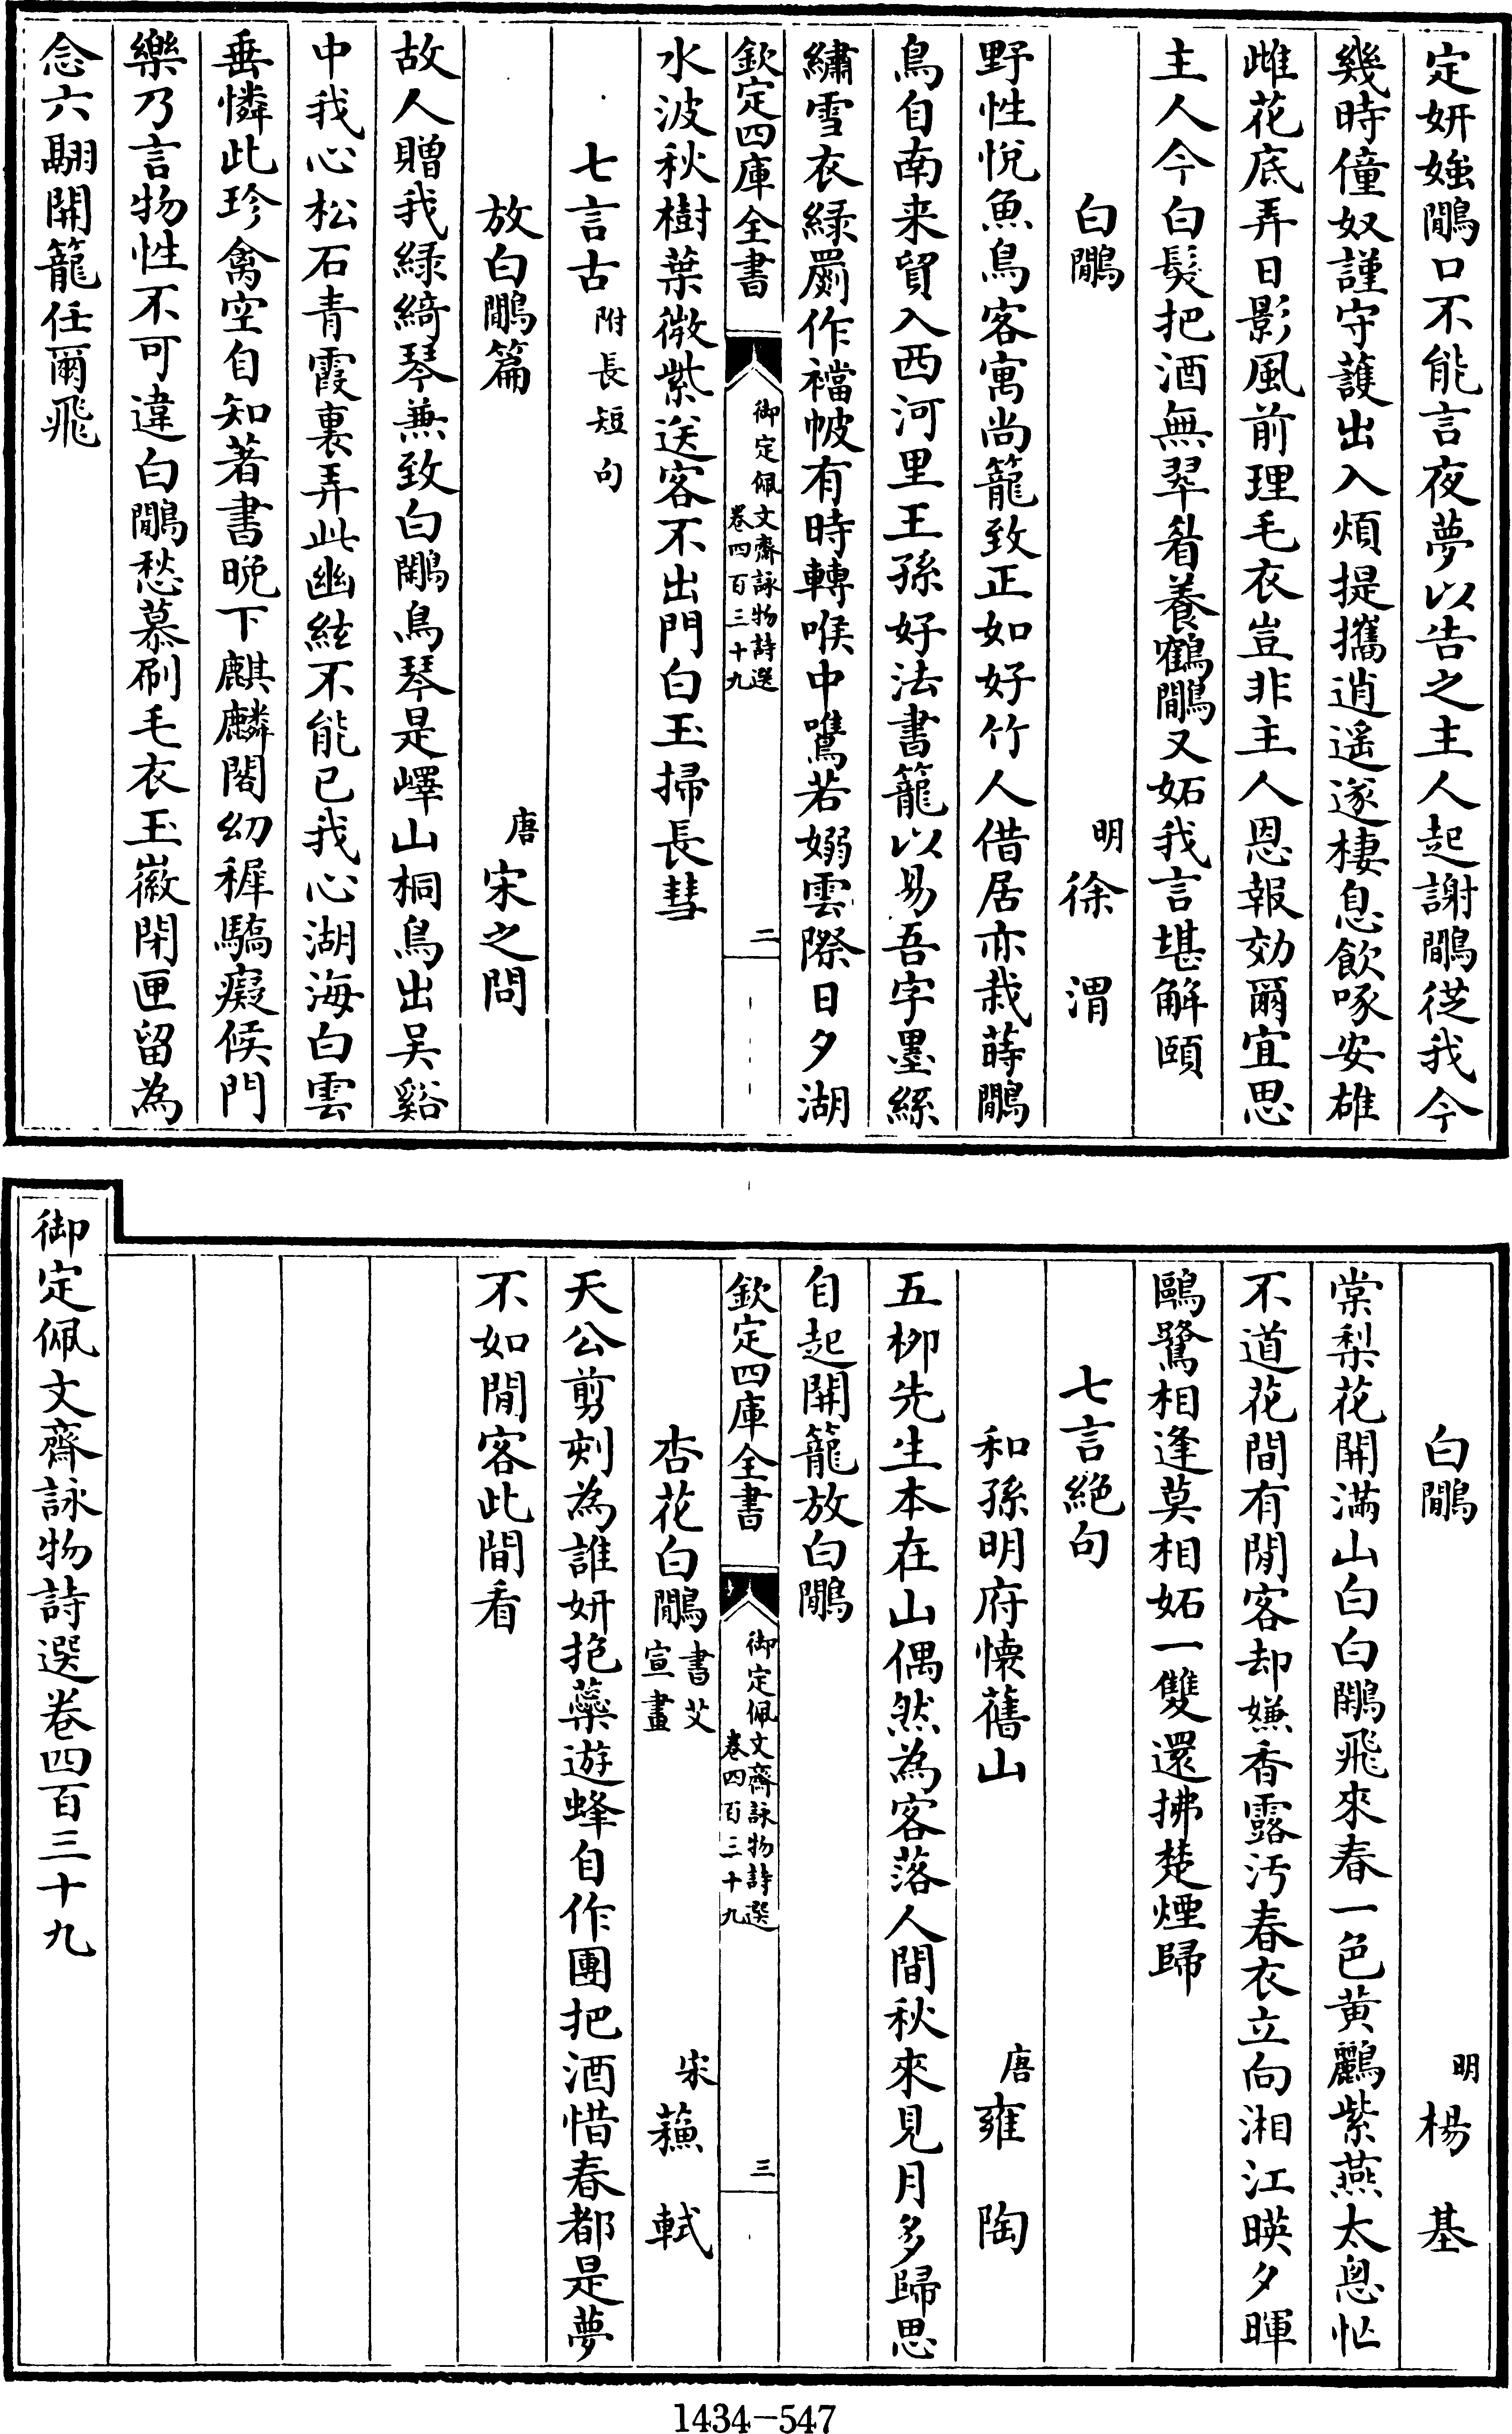 定妍媸鷴口不能言夜夢以告之主人起謝鷴從我今
幾時僮奴謹守護出入煩提攜逍遥遂棲息飲啄安雄
雌花底弄日影風前理毛衣豈非主人恩報効爾宜思
主人今白髮把酒無翠眉養鶴鷴又妬我言堪解頤
白鷴 明 徐渭
野性悅魚鳥客寓尚籠致正如好竹人借居亦栽蒔鷴
鳥自南来貿入西河里王孫好法書籠以易吾字墨絲
繡雪衣綠罽作襠帔有時轉喉中嚆若嫋雲際日夕湖
欽定四庫全書 御定佩文齋詠物詩選 卷四百三十九 二
水波秋樹葉微紫送客不出門白玉掃長彗
七言古 附長短句
放白鷴篇 唐 宋之問
故人贈我綠綺琴兼致白鷴鳥琴是嶧山桐鳥出吴谿
中我心松石青霞裏弄此幽絃不能已我心湖海白雲
垂憐此珍禽空自知著書晚下麒麟閣幼穉驕癡候門
樂乃言物性不可違白鷴愁慕刷毛衣玉徽閉匣留為
念六翮開籠任爾飛
白鷴 明 楊基
棠梨花開滿山白白鷴飛來春一色黄鸝紫燕太悤忙
不道花間有閒客却嫌香露汚春衣立向湘江暎夕暉
鷗鷺相逢莫相妬一雙還拂楚煙歸
七言絶句
和孫明府懷舊山 唐 雍陶
五栁先生本在山偶然為客落人間秋來見月多歸思
自起開籠放白鷴
欽定四庫全書 御定佩文齋詠物詩選 卷四百三十九 三
杏花白鷴 書艾宣畫 宋 蘓軾
天公剪刻為誰妍抱蘂遊蜂自作團把酒惜春都是夢
不如閒客此間看
御定佩文齋詠物詩選卷四百三十九
1434-547